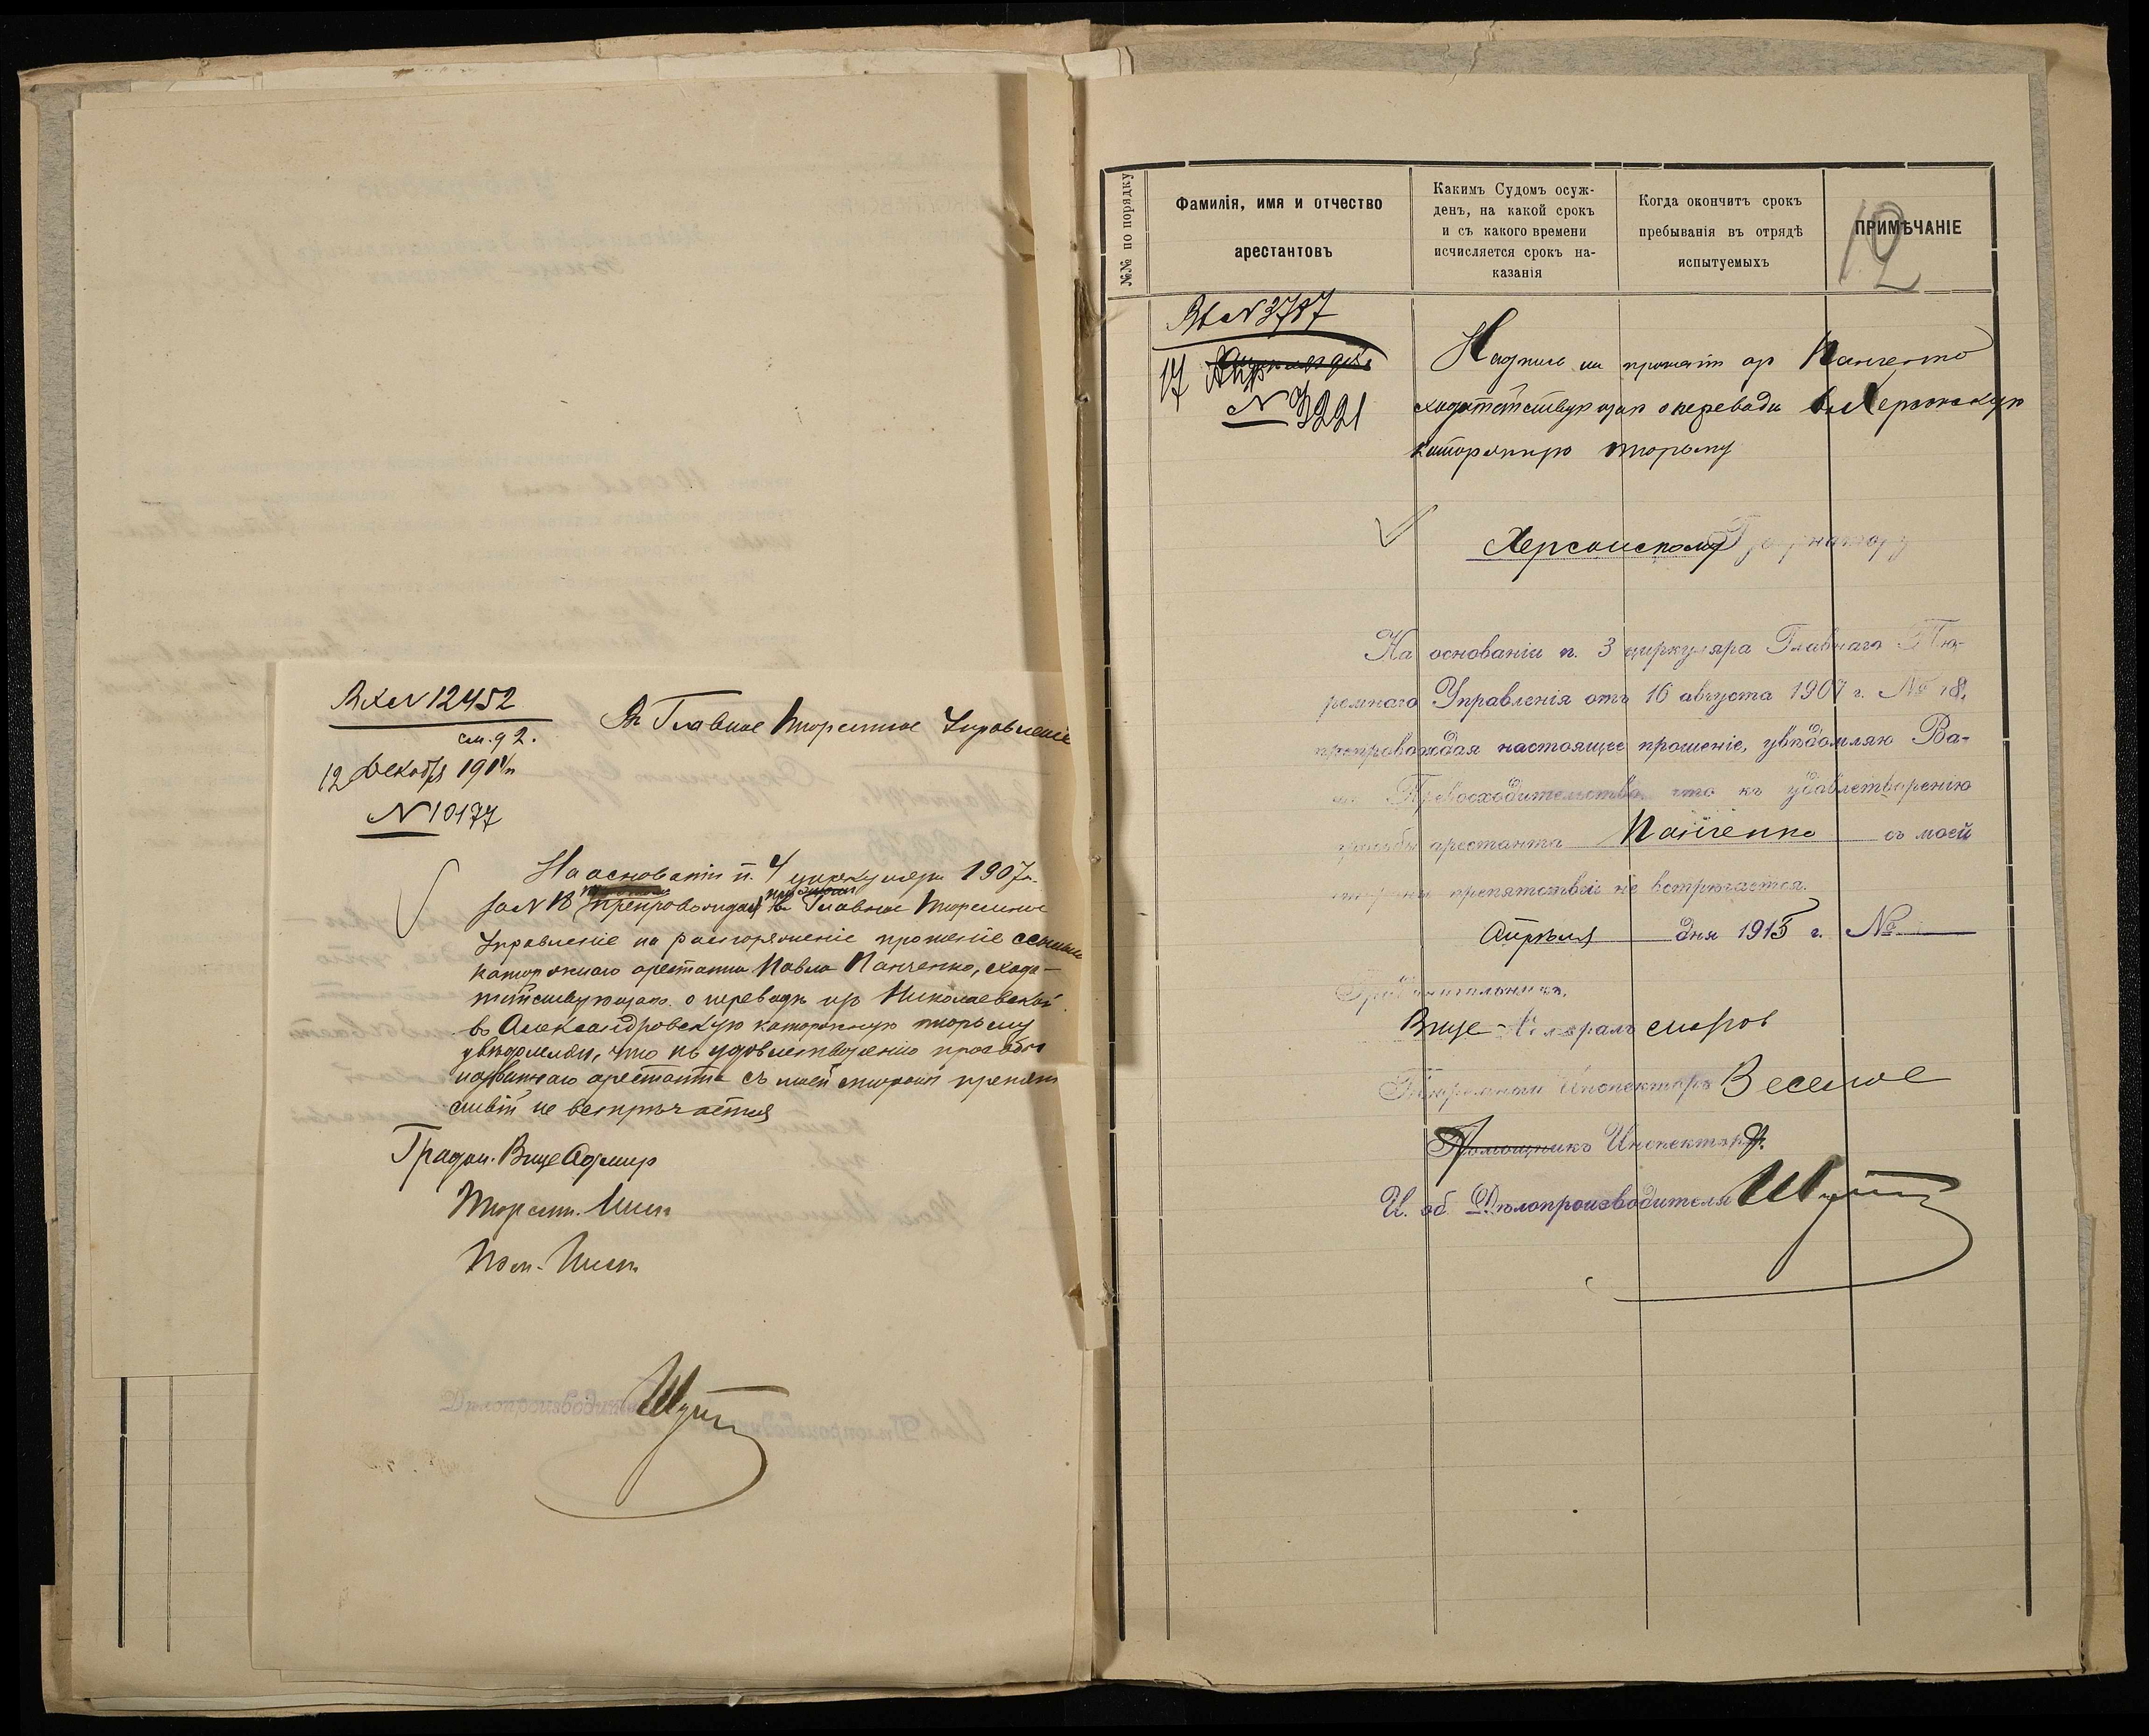 Вх № 12452
см. 92.
12 Декабря 191
№ 10177
Въ Главное Тюремное Управленіе
На основаніи п. 4 циркуляра 1907 г.
за № 18 препровождая въ Главное Тюремное
Управленіе на распоряженіе прошеніе ссыльно
каторжнаго арестанта Павла Панченко, хода-
тайствующаго о переводѣ изъ Николаевской
въ Александровскую каторжную тюрьму
увѣдомляю, что къ удовлетворенію просьбы
названнаго арестанта съ моей стороны препят
ствій не встрѣчается
Градон. Вице Адмир
Тюремн. Инсп
Пом. Инсп
Дѣлопроизводитель
№№ по порядку
Фамилія, имя и отчество
арестантовъ
Какимъ Судомъ осуж-
денъ, на какой срокъ
и съ какого времени
исчисляется срокъ на-
казанія
Когда окончитъ срокъ
пребыванія въ отрядѣ
испытуемыхъ
ПРИМѢЧАНІЕ
12
Вх № 3787
17 Апр
№ 3221
Надпись на прошеніи ар Панченко
ходатайствующаго о переводѣ въ Херсонскую
каторжную тюрьму
Херсонскому Губернатору
На основаніи п. 3 циркуляра Главнаго Тю-
ремнаго Управленія отъ 16 августа 1907 г. № 18,
препровождая настоящее прошеніе, увѣдомляю Ва-
ше Превосходительство, что къ удовлетворенію
просьбы арестанта Панченко съ моей
стороны препятствій не встрѣчается.
Апрѣля дня 1915 г. №
Градоначальникъ,
Вице-Адмиралъ
Тюремный Инспекторъ
Помощникъ Инспектора
И. об. Дѣлопроизводителя